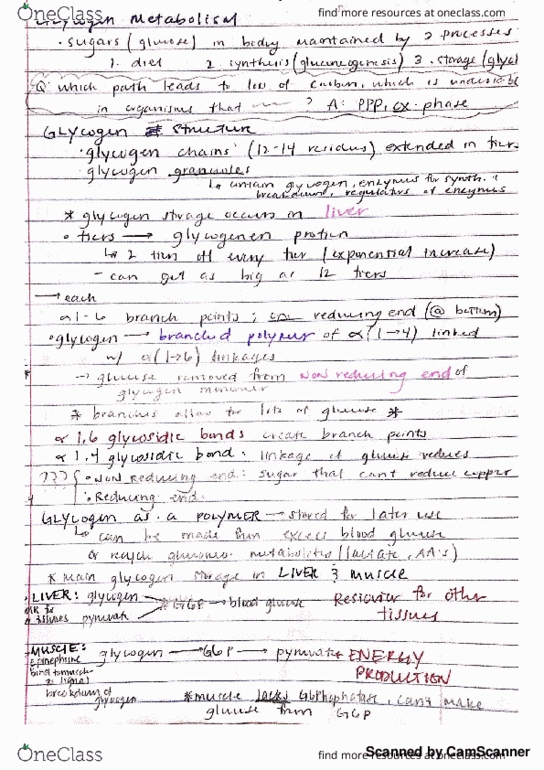 OneClass find more resources at oneclass.com
Glycogen Metabolism
· sugars (glucose) in body maintained by 2 processes
1. diet 2. synthesis (gluconeogenesis) 3. storage (glyc
Q: which path leads to loss of carbon, which is undesirable
in organisms that ? A: PPP, ox. phase
Glycogen structure
· glycogen chains (12-14 residues) extended in tiers
· glycogen granules
↳ contain glycogen, enzymes for synth. &
breakdown, regulators of enzymes
* glycogen storage occurs in liver
• tiers → glycogenen protien
↳ 2 tiers off every tier (exponential increase)
- can get as big as 12 tiers
→ each
α1-6 branch points; reducing end (@ bottom)
• glycogen → branched polymer of α(1→4) linked
w/ α(1→6) linkages
→ glucose removed from non reducing end of
glycogen
* branches allow for lots of glucose *
α 1,6 glycosidic bonds create branch points
α 1,4 glycosidic bond: linkage of glucose
??? • Non Reducing end: sugar that cant reduce copper
• Reducing end:
GLycogen as a polymer → stored for later use
↳ can be made from excess blood glucose
or recycle metabolites (lactate, AA's)
* main glycogen storage in LIVER & muscle
• LIVER: glycogen G6P → blood glucose Resivior for other
tissues pyruvate tissues
• MUSCLE: glycogen → G6P → pyruvate ENERGY
epinephrine PRODUCTION
breakdown of
glycogen * muscle lacks G6Phosphatase, can't make
glucose from G6P
Scanned by CamScanner
OneClass find more resources at oneclass.com